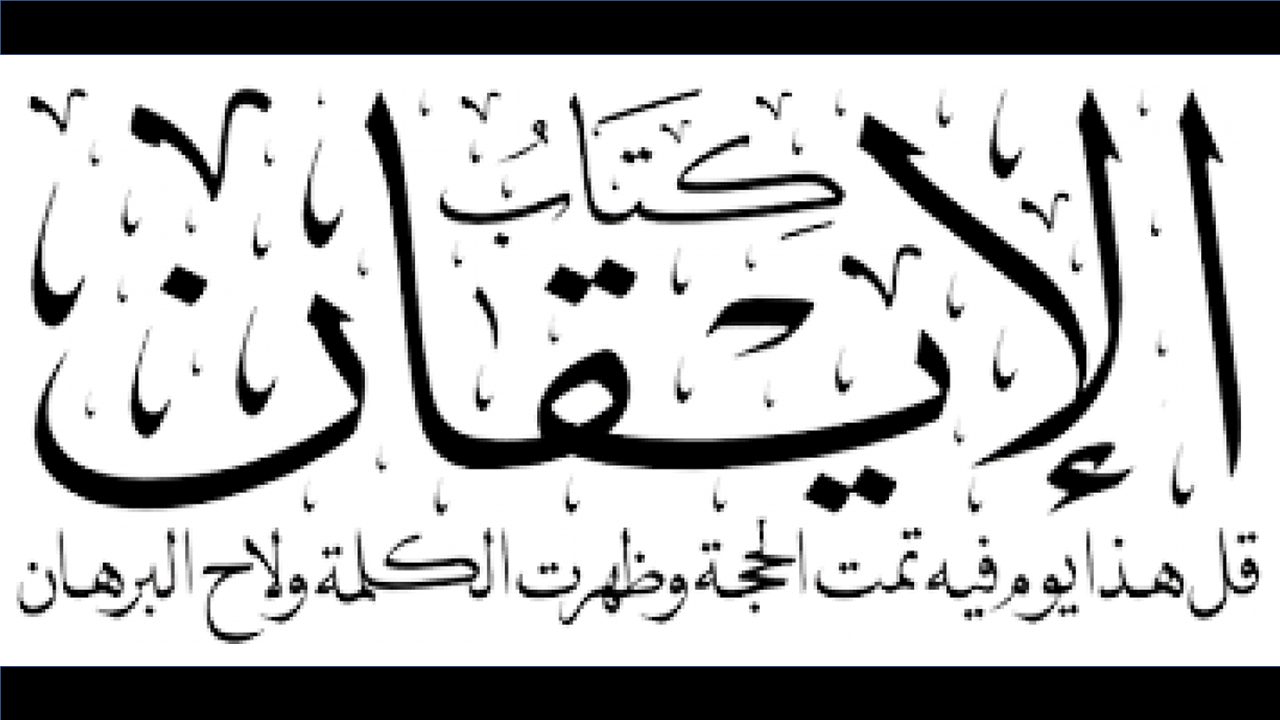 كِتَابُ
الإيقان
قل هذا يوم فيه تمت الحجة وظهرت الكلمة ولاح البرهان